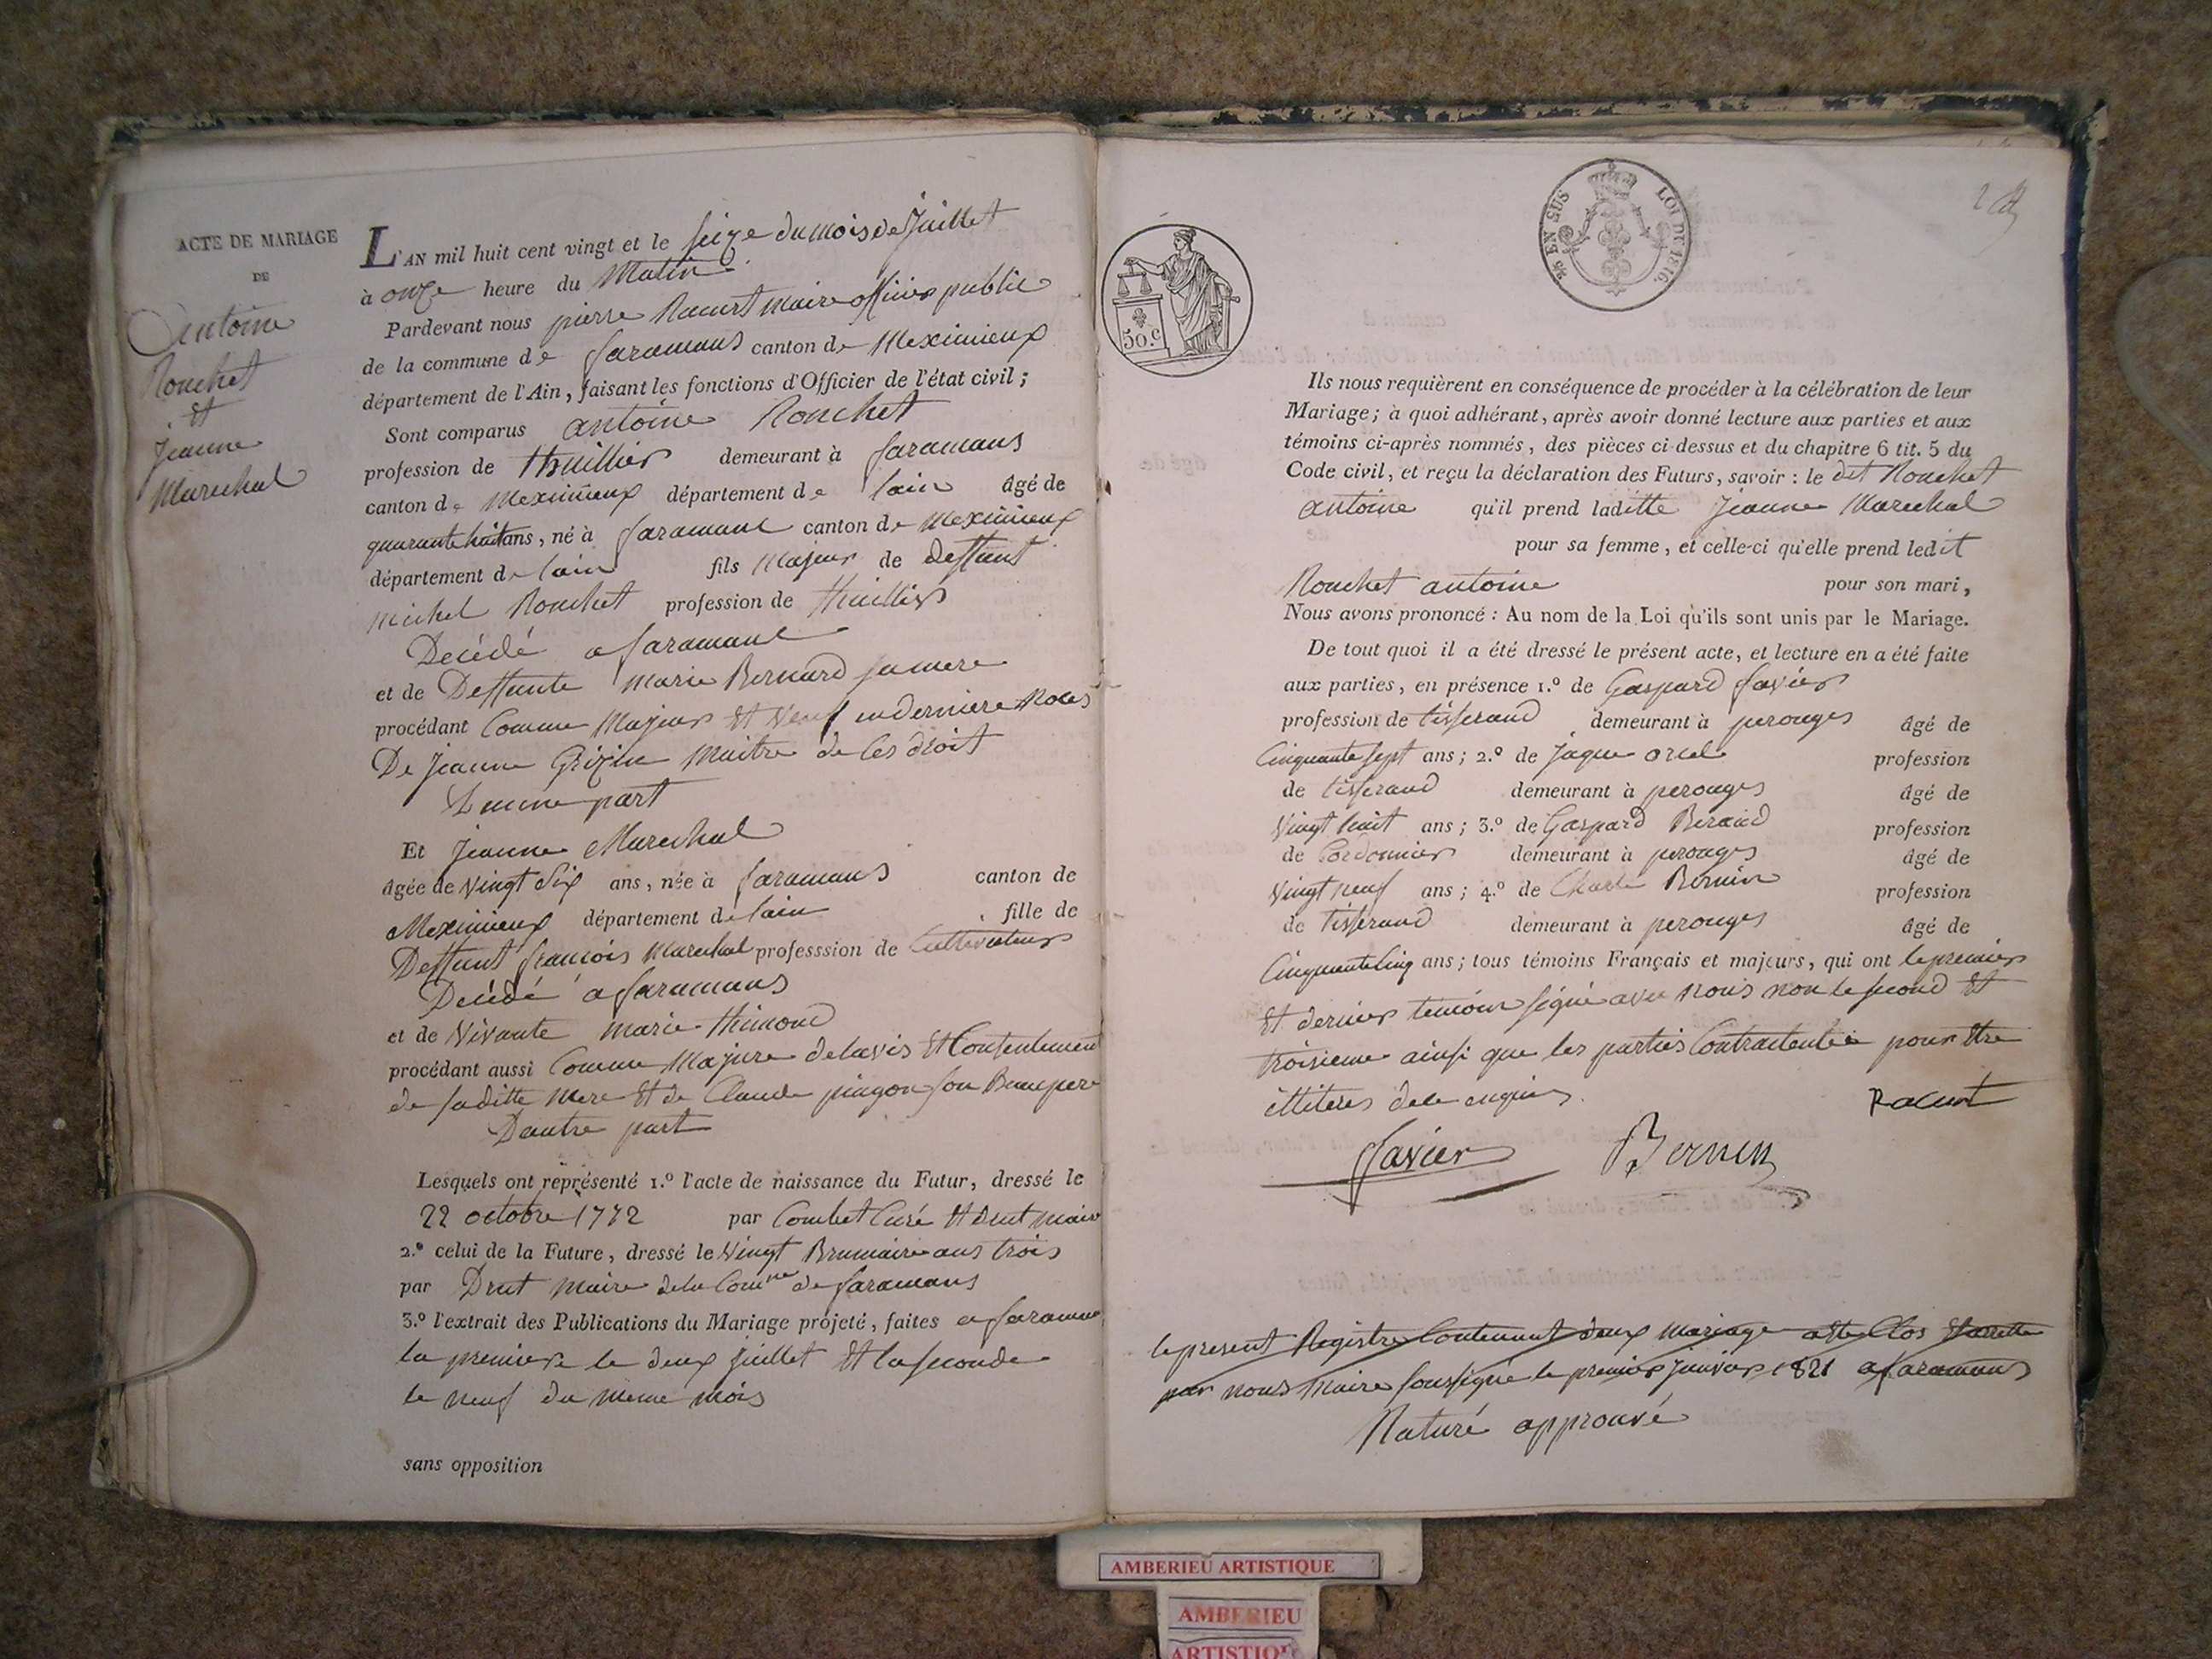 ACTE DE MARIAGE
DE
Antoine
Rouchet
Et
Jeanne
Marechal
L'AN mil huit cent vingt et le seize du mois de Juillet
à onze heure du Matin
Pardevant nous pierre Racurt maire officier public
de la commune de faramans canton de Meximieux
département de l'Ain, faisant les fonctions d'Officier de l'état civil ;
Sont comparus antoine Rouchet
profession de thuillier demeurant à faramans
canton de Meximieux département de lain âgé de
quarante huit ans, né à faramans canton de Meximieux
département de lain fils Majeur de deffunt
michel Rouchet profession de thuillier
Decédé a faramans
et de Deffunte marie Bernard sa mere
procédant Comme Majeur Et Veuf en derniere Noces
De Jeanne Maitre de ces droit
D'une part
Et Jeanne Marechal
âgée de Vingt Six ans, née à faramans canton de
Meximieux département de lain fille de
Deffunt francois Marechal professsion de Cultivateur
Decédé a faramans
et de Vivante marie
procédant aussi Comme Majure de lavis Et Consentement
de saditte Mere Et de Claude pingon son Beaupere
Dautre part
Lesquels ont représenté 1.º l'acte de naissance du Futur, dressé le
22 octobre 1772 par Combet Curé Et drut maire
2.º celui de la Future, dressé le Vingt Brumaire ans trois
par Drut maire de la Comne de faramans
3.º l'extrait des Publications du Mariage projeté, faites a faramans
la premiere le deux juillet Et la seconde
le neuf du meme mois
sans opposition
50.c
25 EN SUS
LOI DE 1816.
Ils nous requièrent en conséquence de procéder à la célébration de leur
Mariage ; à quoi adhérant, après avoir donné lecture aux parties et aux
témoins ci-après nommés, des pièces ci-dessus et du chapitre 6 tit. 5 du
Code civil, et reçu la déclaration des Futurs, savoir : le dit Rouchet
antoine qu'il prend laditte Jeanne Marechal
pour sa femme, et celle-ci qu'elle prend ledit
Rouchet antoine pour son mari,
Nous avons prononcé : Au nom de la Loi qu'ils sont unis par le Mariage.
De tout quoi il a été dressé le présent acte, et lecture en a été faite
aux parties, en présence 1.º de Gaspard favier
profession de tisserand demeurant à perouges âgé de
Cinquante sept ans ; 2.º de Jaque orcel profession
de tisserand demeurant à perouges âgé de
Vingt huit ans ; 3.º de Gaspard Beraud profession
de Cordonnier demeurant à perouges âgé de
Vingt neuf ans ; 4.º de Charle Bernin profession
de tisserand demeurant à perouges âgé de
Cinquante Cinq ans ; tous témoins Français et majeurs, qui ont le premier
Et dernier temoin signé avec nous non le second Et
troisieme ainsi que les parties Contractantes pour Etre
illiteres de ce enquis
Racurt
favier Bernin
le present Registre Contenant deux mariage atte Clos Et arrette
par nous maire soussigné le premier janvier 1821 a faramans
Raturé approuvé
AMBERIEU ARTISTIQUE
AMBERIEU
ARTISTIQUE